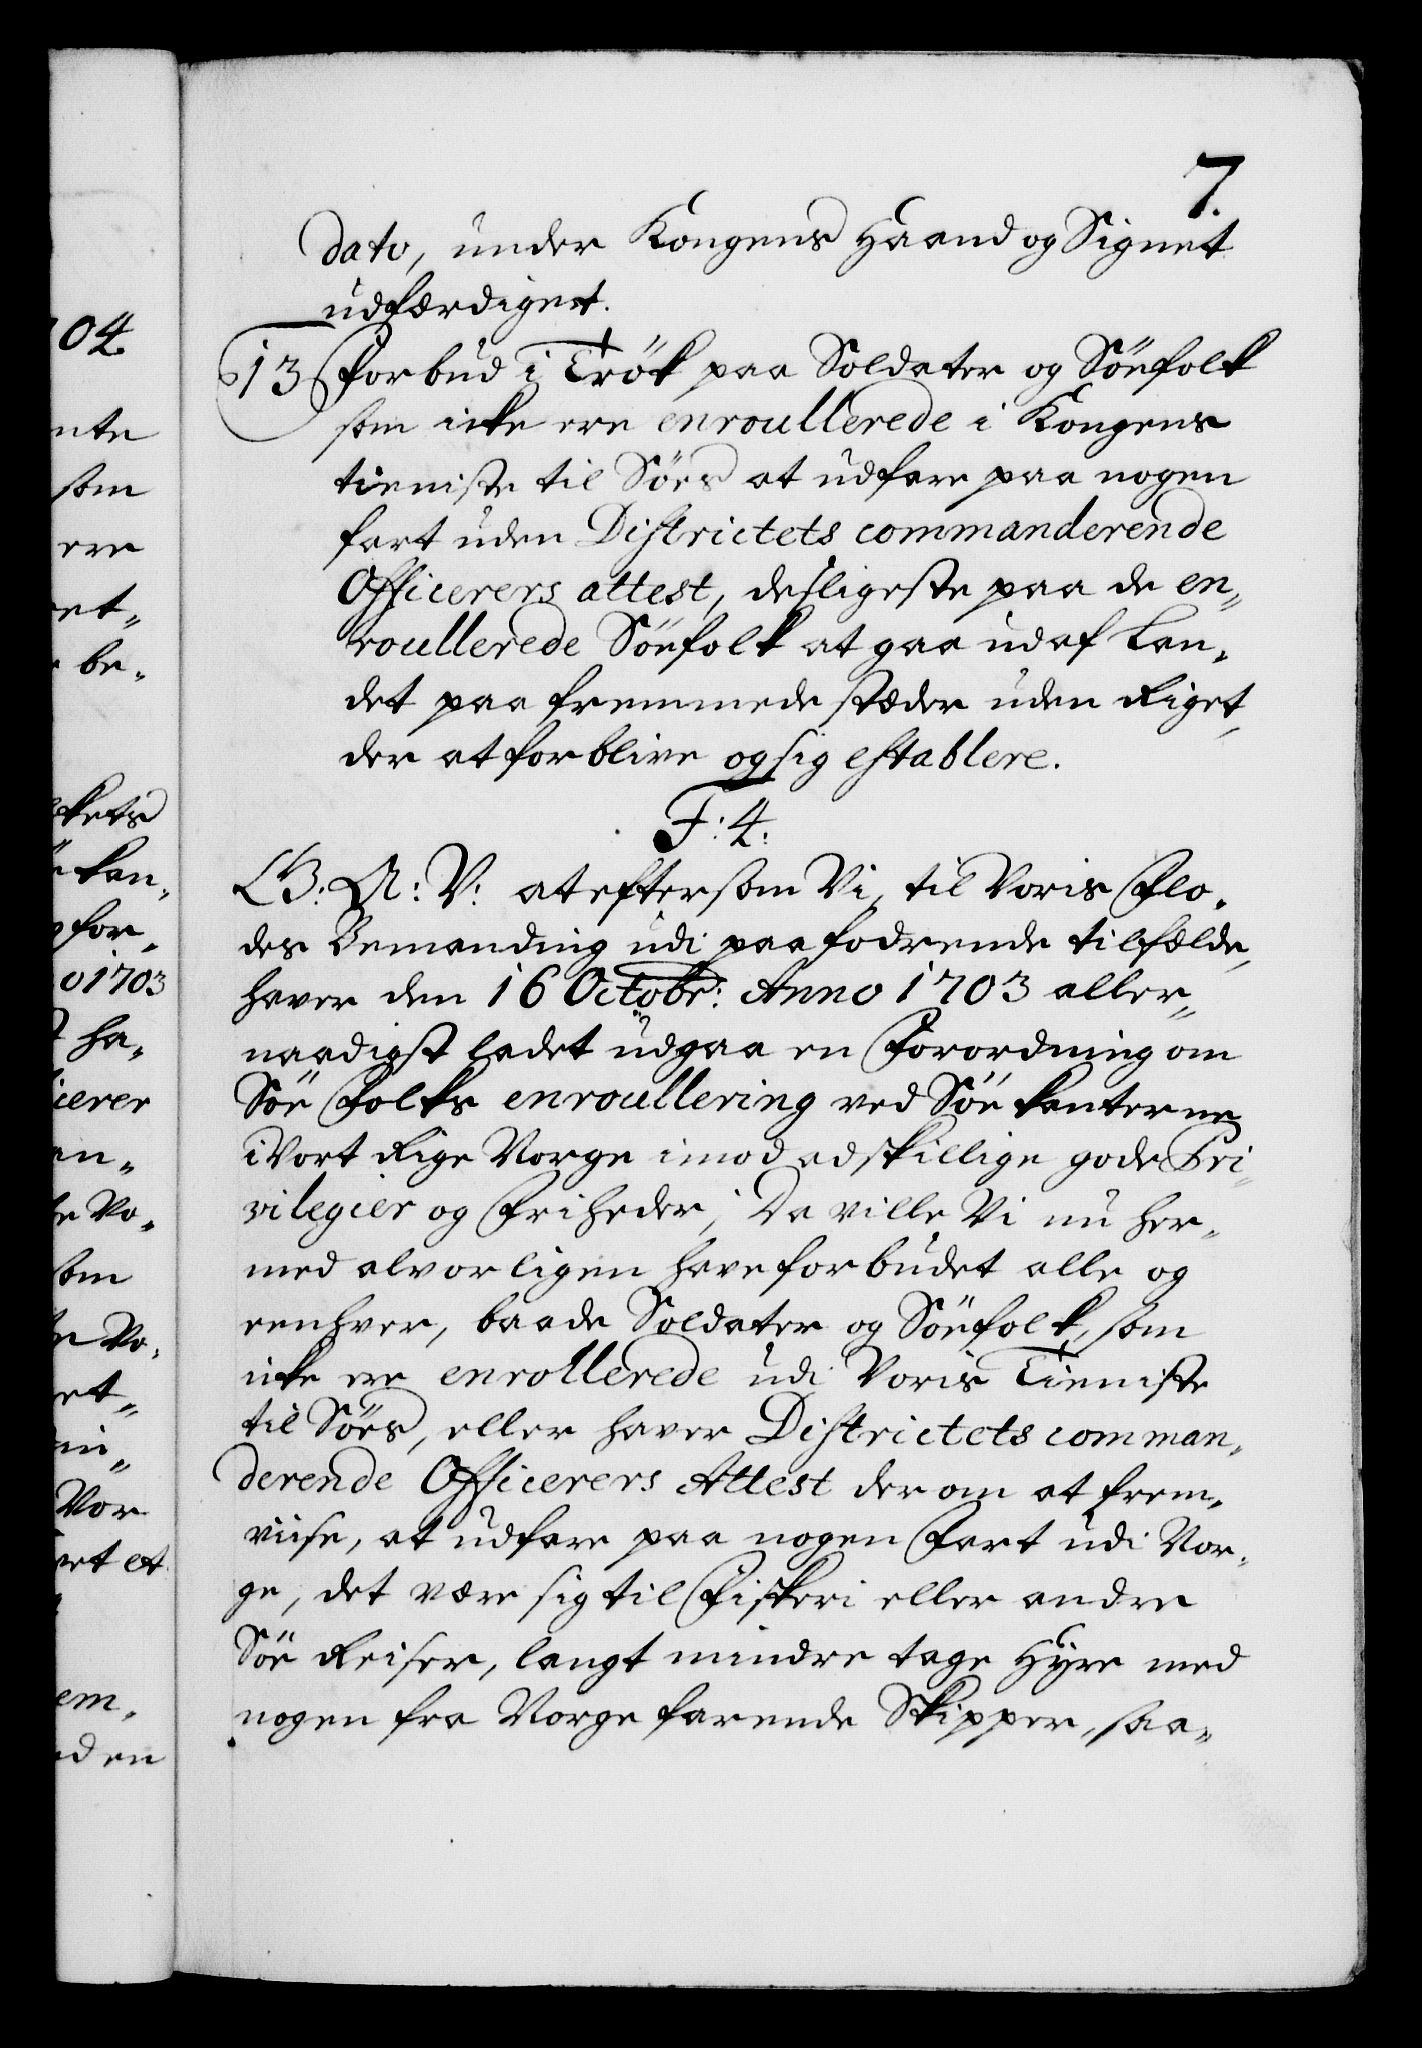 7.
dato, under Kongens Haand og Signet
udfærdiget.
13 Forbud i Trök paa Soldater og Söefolk
som icke ere enroullerede i Kongens
tieniste til Söes at udfare paa nogen
fart uden Districtets commanderende
Officerers attest, desligeste paa de en„
roullerede Söefolk at gaa ud af Lan„
det paa fremmede stæder uden Riget,
der at forblive og sig establere.
F: 4:
G: A: V: at eftersom Vi, til Voris Flo„
des Bemanding udi paafodrende tilfælde,
haver den 16 Octobr: Anno 1703 aller„
naadigst ladet udgaa en Forordning om
Söe Folks enroullering ved Söe kanterne
i Vort Rige Norge imod adskillige gode Pri„
vilegier og Friheder, Da ville Vi nu her„
med alvorligen have forbudet alle og
eenhver, baade Soldater og Söefolk, som
icke ere enrollerede udi Voris Tieniste
til Söes, eller haver Districtets comman„
derende Officerers Attest derom at frem„
viise, at udfare paa nogen Fart udi Nor„
ge, det være sig til Fiskeri eller andre
Söe Reiser, langt mindre tage Hyre med
nogen fra Norge farende Skipper, saa„
04.
som
ere
et„
be„
kets
kan„
for„
o 1703
ha„
icerer
en„
e No„
som
No„
et„
Nor
et at
em„
eden